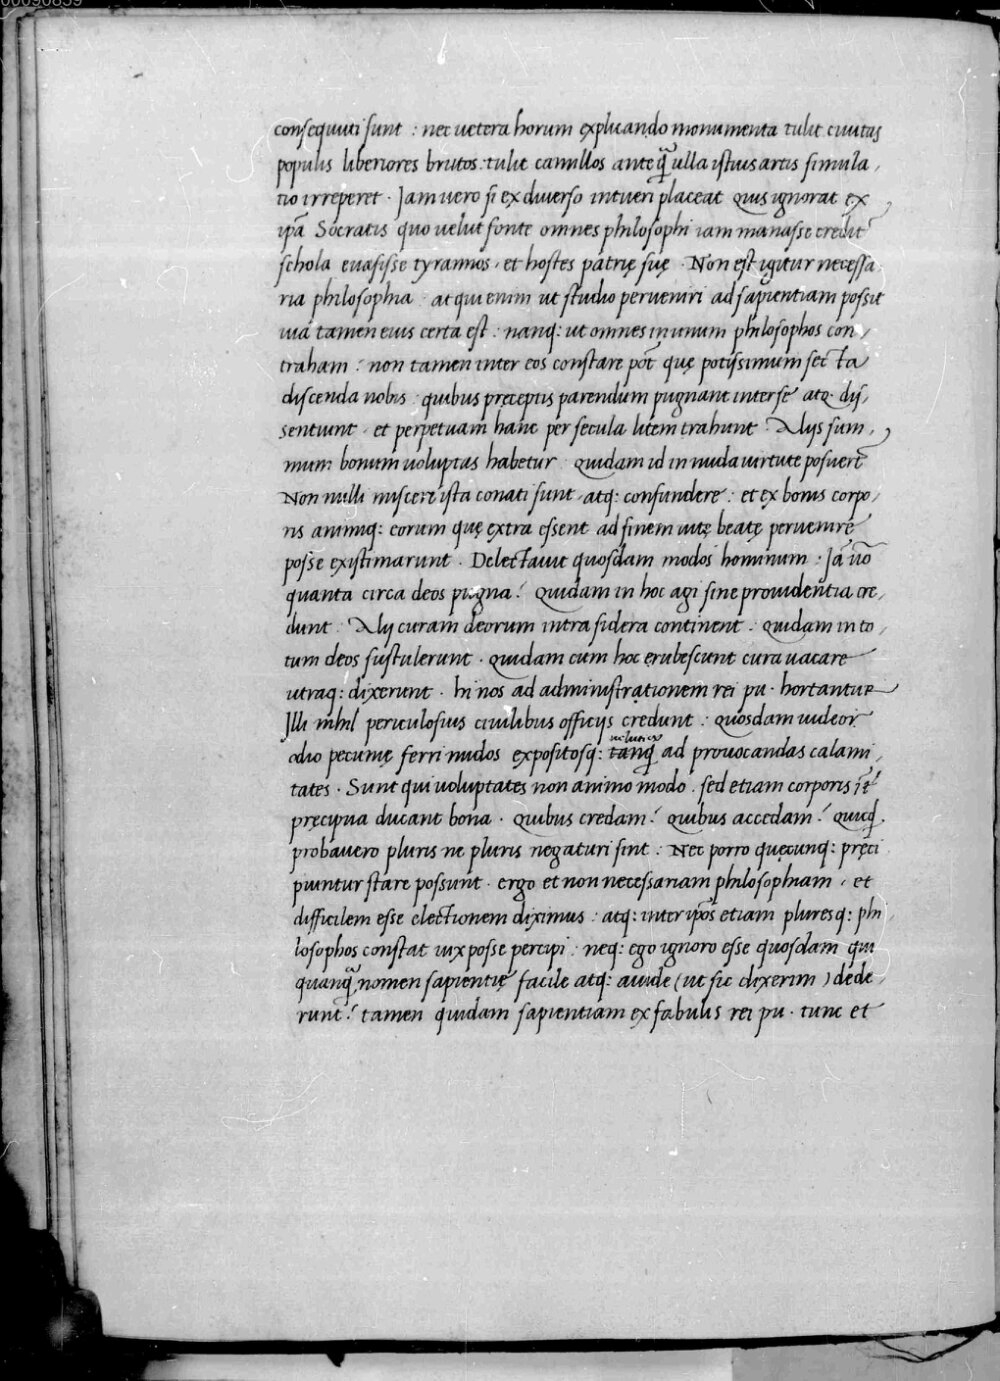 00090859
consequuti sunt : nec uetera horum explicando monumenta tulit ciuitas
populis liberiores brutos : tulit camillos anteq̃ ulla istius artis simula,
tio irreperet . Jam uero si ex diuerso intueri placeat Quis ignorat ex
ipã Socratis quo uelut fonte omnes philosophi iam manasse credũt
schola euasisse tyrannos , et hostes patrię suę . Non est igitur necessa
ria philosophia : atqui enim ut studio perueniri ad sapientiam possit
uia tamen eius certa est : nanq: ut omnes in unum philosophos con,
traham : non tamen inter eos constare põt quę potissimum secta
discenda nobis : quibus pręceptis parendum pugnant inter se atq. dis,
sentiunt , et perpetuam hanc per secula litem trahunt . Alijs sum,
mum bonum uoluptas habetur . Quidam id in nuda uirtute posuert̃
Non nulli miscere ista conati sunt , atq: confundere : et ex bonis corpo,
ris animiq: eorum quę extra essent ad finem uitę beatę peruenire
posse existimarunt . Delectauit quosdam modos hominum : Jã uõ
quanta circa deos pugna ? Quidam in hoc agi sine prouidentia cre,
dunt . Alij curam deorum intra sidera continent : Quidam in to,
tum deos sustulerunt . Quidam cum hoc erubescunt cura uacare
utraq: dixerunt . hi nos ad administrationem rei pu . hortantur
Jlli nihil periculosius ciuilibus officijs credunt : Quosdam uideor
odio pecunię ferri nudos expositosq: tanq̃ uelut ex ad prouocandas calami,
tates . Sunt qui uoluptates non animo modo . sed etiam corporis iñt
pręcipua ducant bona . Quibus credam ? Quibus accedam ? Quicq̃
probauero pluris ne pluris negaturi sint : Nec porro quęcunq: pręci
piuntur stare possunt . ergo et non necessariam philosophiam , et
difficilem esse electionem diximus : atq: inter ipõs etiam pluresq: phi,
losophos constat uix posse percipi : neq: ego ignoro esse quosdam qui
quanq̃ nomen sapientię facile atq: auide (ut sic dixerim) dede,
runt ? tamen quidam sapientiam ex fabulis rei pu . tunc et